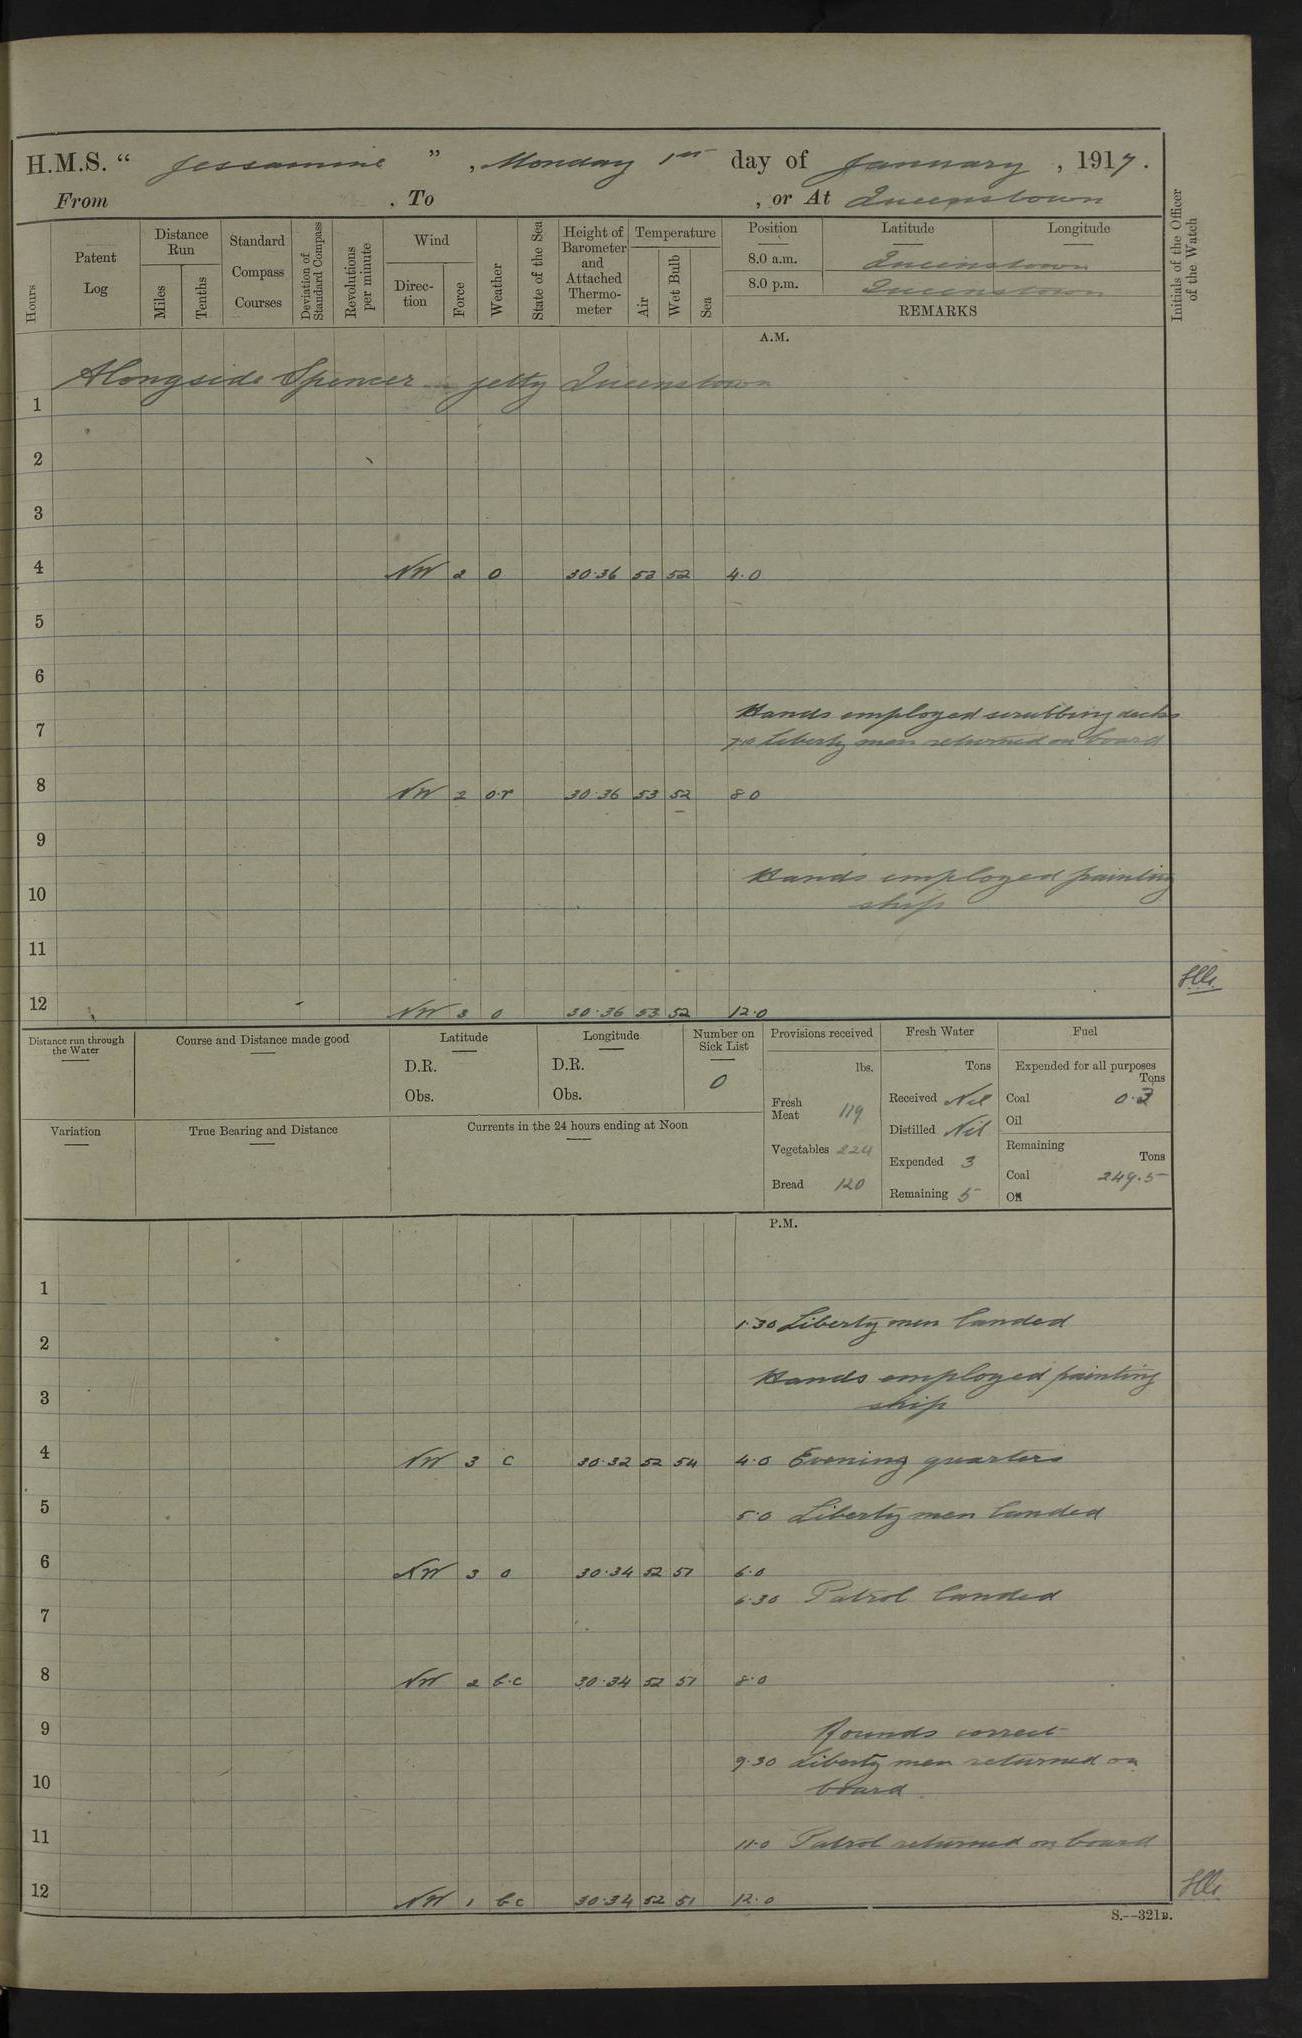 H.M.S. " Jessamine ", Monday 1st day of January, 1917.
From , To , or At Queenstown
Hours
Patent Log
Distance Run
Miles
Tenths
Standard Compass Courses
Deviation of Standard Compass
Revolutions per minute
Wind
Direc-tion
Force
Weather
State of the Sea
Height of Barometer and Attached Thermo-meter
Temperature
Air
Wet Bulb
Sea
Position Latitude Longitude
8.0 a.m. Queenstown
8.0 p.m. Queenstown
REMARKS
Initials of the Officer of the Watch
A.M.
Alongside Spencer jetty Queenstown
1
2
3
4 NW 2 0 30.36 53 52 4.0
5
6
Hands employed scrubbing decks
7
7.0 Liberty men returned on board
8 NW 2 o.r 30.36 53 52 8.0
9
Hands employed painting
10 ship
11
12 NW 3 0 30.36 53 52 12.0
Distance run through the Water
Course and Distance made good
Latitude
D.R.
Obs.
Longitude
D.R.
Obs.
Number on Sick List
0
Provisions received
lbs.
Fresh Meat 119
Vegetables 224
Bread 120
Fresh Water
Tons
Received Nil
Distilled Nil
Expended 3
Remaining 5
Fuel
Expended for all purposes
Tons
Coal 0.3
Oil
Remaining
Tons
Coal 249.5
Oil
Variation
True Bearing and Distance
Currents in the 24 hours ending at Noon
P.M.
1
1.30 Liberty men landed
2
Hands employed painting
3 ship
4 NW 3 c 30.32 52 54 4.0 Evening quarters
5 5.0 Liberty men landed
6 NW 3 0 30.34 52 51 6.0
6.30 Patrol landed
7
8 NW 2 b.c 30.34 52 51 8.0
9 Rounds correct
9.30 Liberty men returned on
10 board
11 11.0 Patrol returned on board
12 NW 1 bc 30.34 52 51 12.0
S.--321B.